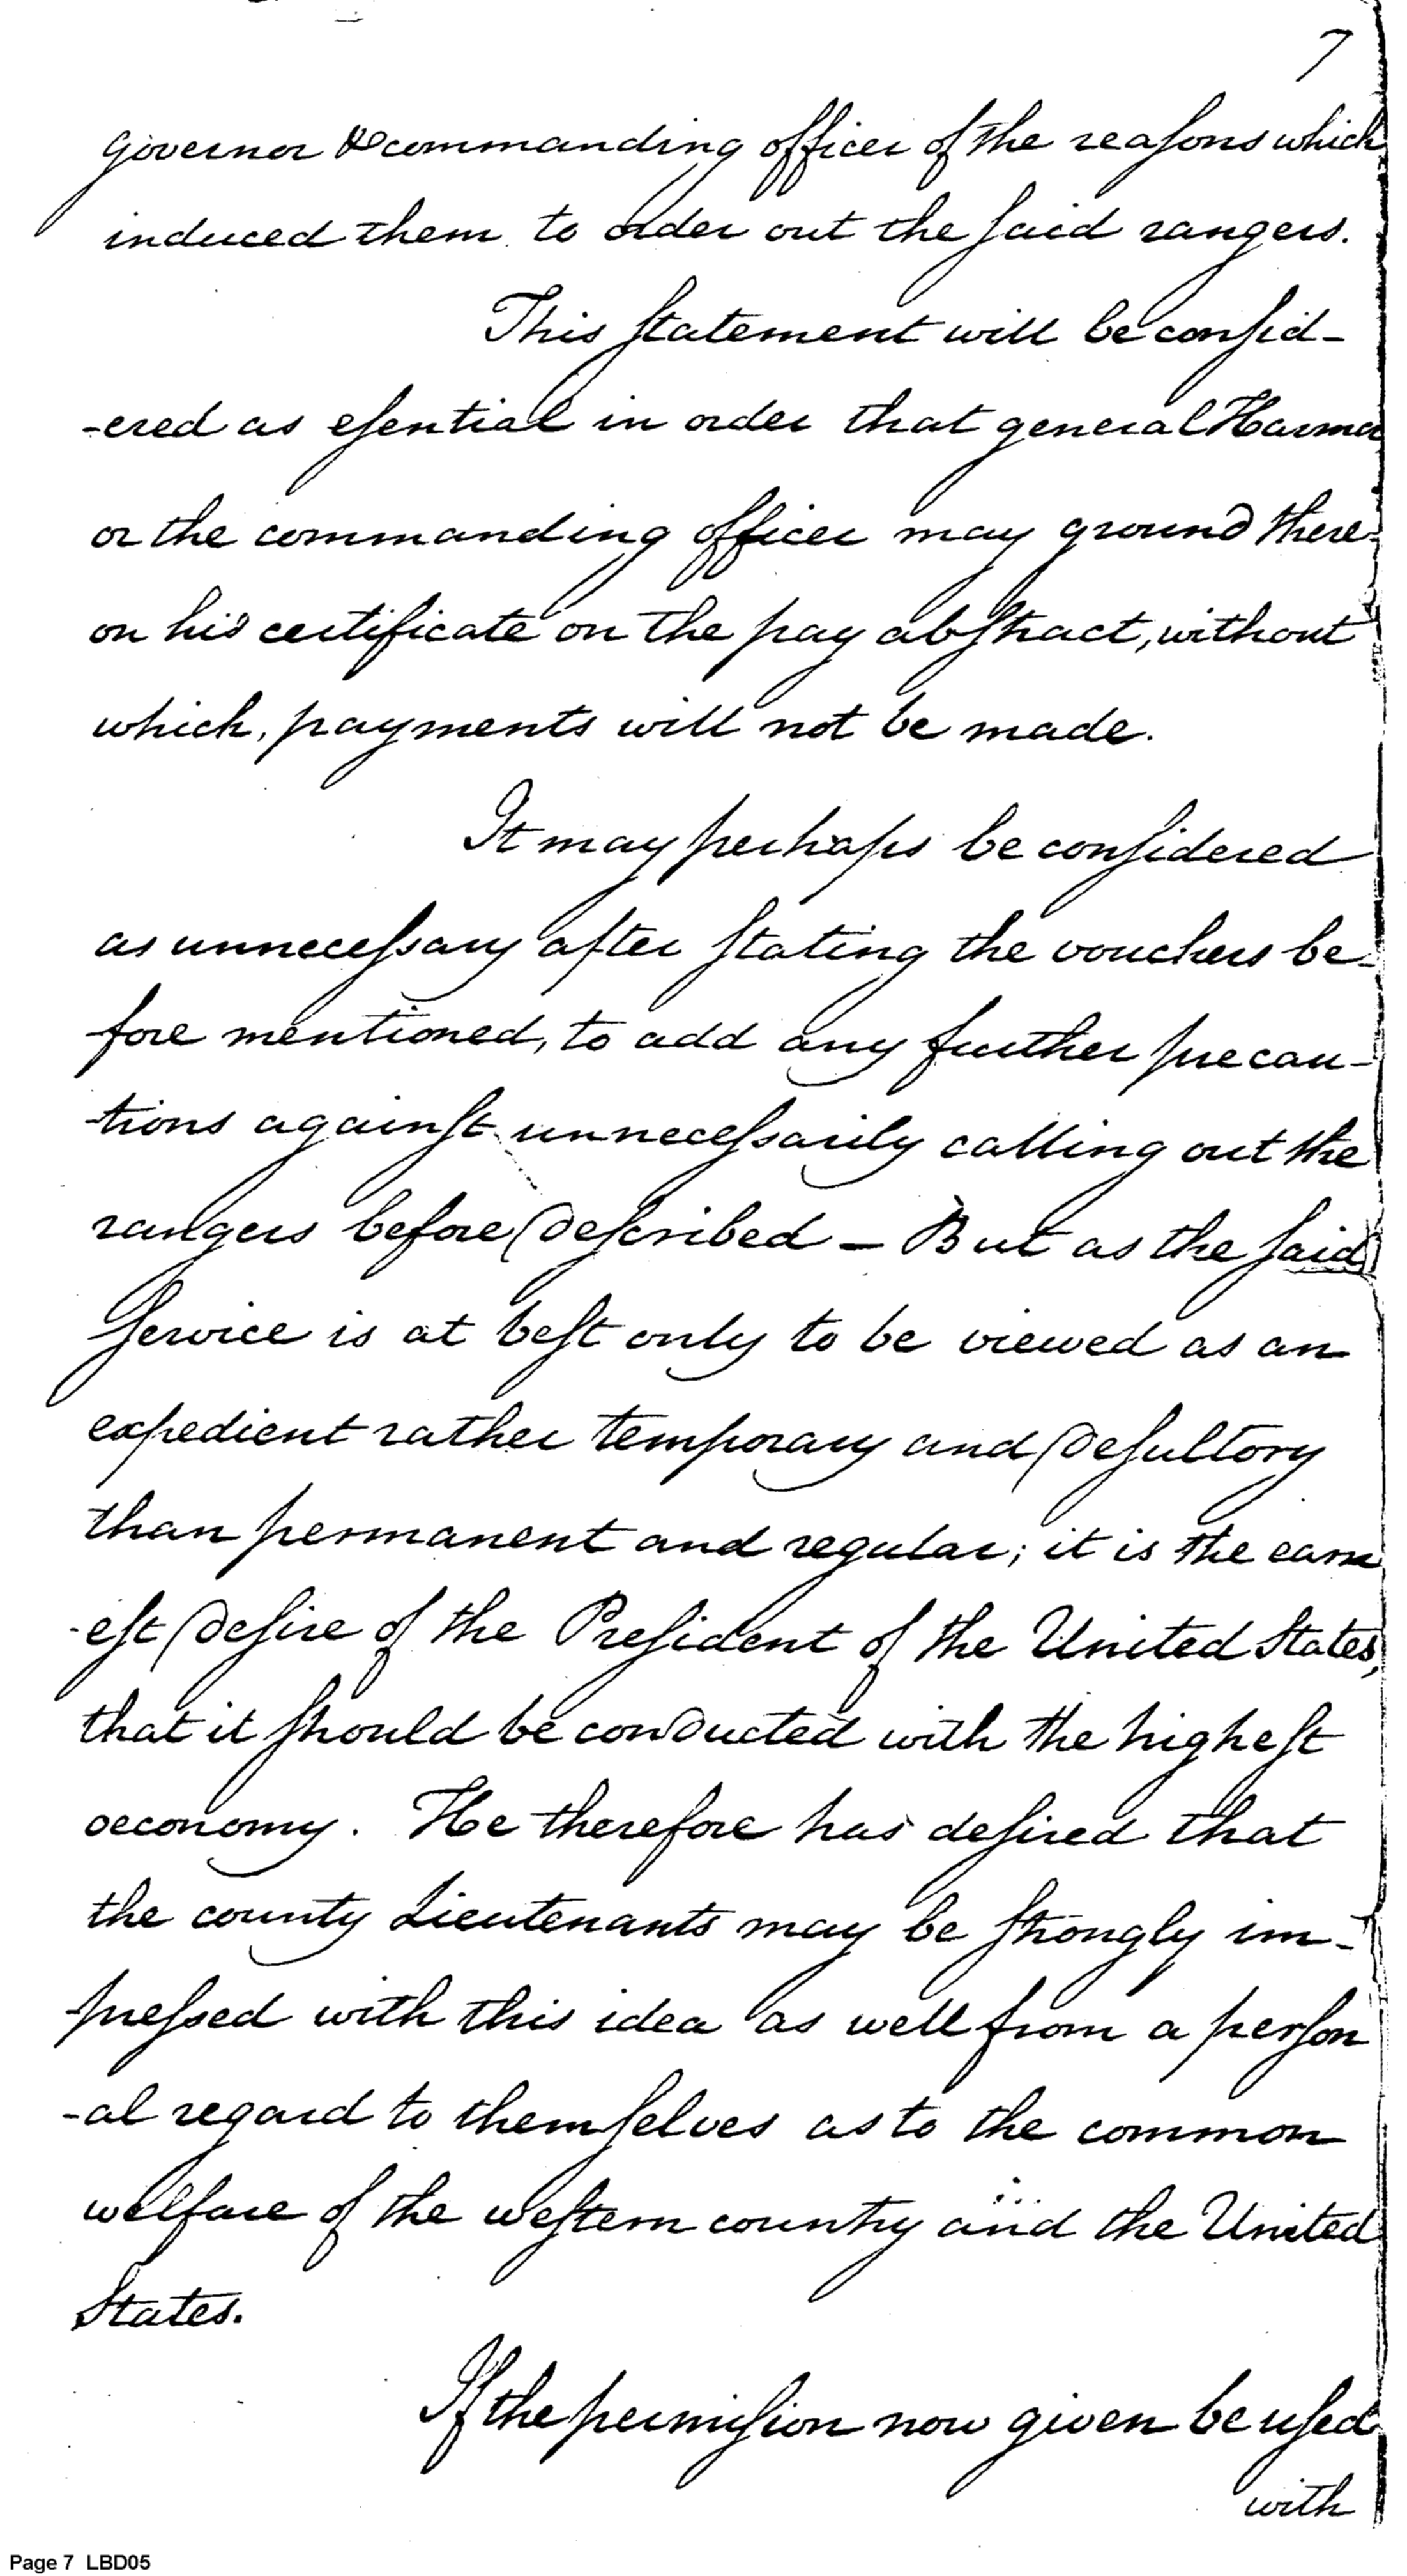 7
governor & commanding officer of the reasons which
induced them to order out the said rangers.
This statement will be consid-
-ered as esential in order that general Harmar
or the commanding officer may ground there-
on his certificate on the pay abstract, without
which, payments will not be made.
It may perhaps be considered
as unnecessary after stating the vouchers be-
fore mentioned, to add any further precau-
-tions against unnecessarily calling out the
rangers before described – But as the said
service is at best only to be viewed as an
expedient rather temporary and desultory
than permanent and regular; it is the earn
-est desire of the President of the United States,
that it should be conducted with the highest
oeconomy. He therefore has desired that
the county Lieutenants may be strongly im-
-pressed with this idea as well from a person
-al regard to themselves as to the common
welfare of the western country and the United
States.
If the permision now given be used
with
Page 7 LBD05